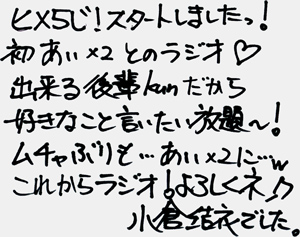 ヒ×5じ!スタートしましたっ!
初あい×2とのラジオ♡
出来る後輩kunだから
好きなこと言いたい放題~!
ムチャぶりも…あい×2に…w
これからラジオ!よろしくネ♪
小倉結衣でした。